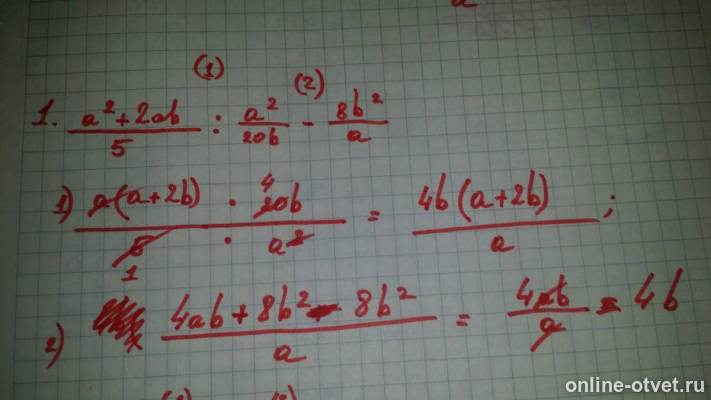 (1) (2)
1. \frac{a^2+2ab}{5} : \frac{a^2}{20b} - \frac{8b^2}{a}
1) \frac{a(a+2b) \cdot 20b}{5 \cdot a^2} = \frac{4b(a+2b)}{a};
4
1
2) \frac{4ab+8b^2-8b^2}{a} = \frac{4ab}{a} = 4b
online-otvet.ru